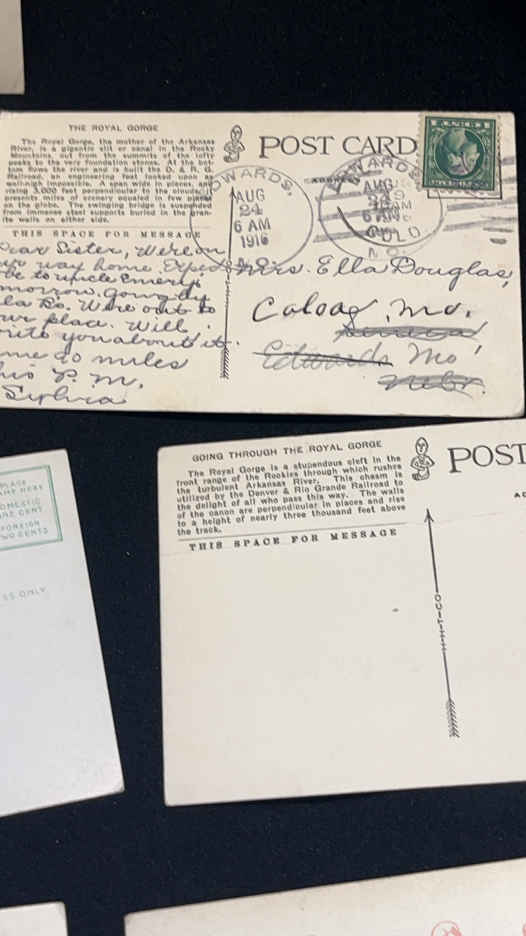 THE ROYAL GORGE
The Royal Gorge, the mother of the Arkansas
River, is a gigantic slit or canal in the Rocky
Mountains, cut from the summits of the lofty
peaks to the very foundation stones. At the bot-
tom flows the river and is built the D. & R. G.
Railroad, an engineering feat looked upon as
well-nigh impossible. A span wide in places, and
being 3,000 feet perpendicular to the clouds, it
presents miles of scenery equaled in few places
on the globe. The swinging bridge is suspended
from immense steel supports buried in the gran-
ite walls on either side.
THIS SPACE FOR MESSAGE
Dear Sister, Were on
our way home. Expect
be to uncle Emery's
morrow. Going by
Were out to
our place. Will
write you about it.
me 90 miles
his P.M.
POST CARD
EDWARDS,
AUG
24
6 AM
1916
MO.
AUG
AM
COLO
Mrs. Ella Douglas,
Mo.
Edwards Mo
Nebr.
PLACE
STAMP HERE
DOMESTIC
ONE CENT
FOREIGN
TWO CENTS
SS ONLY
GOING THROUGH THE ROYAL GORGE
The Royal Gorge is a stupendous cleft in the
front range of the Rockies through which rushes
the turbulent Arkansas River. This chasm is
utilized by the Denver & Rio Grande Railroad to
the delight of all who pass this way. The walls
of the canon are perpendicular in places and rise
to a height of nearly three thousand feet above
the track.
THIS SPACE FOR MESSAGE
POST
H-H-T-CO